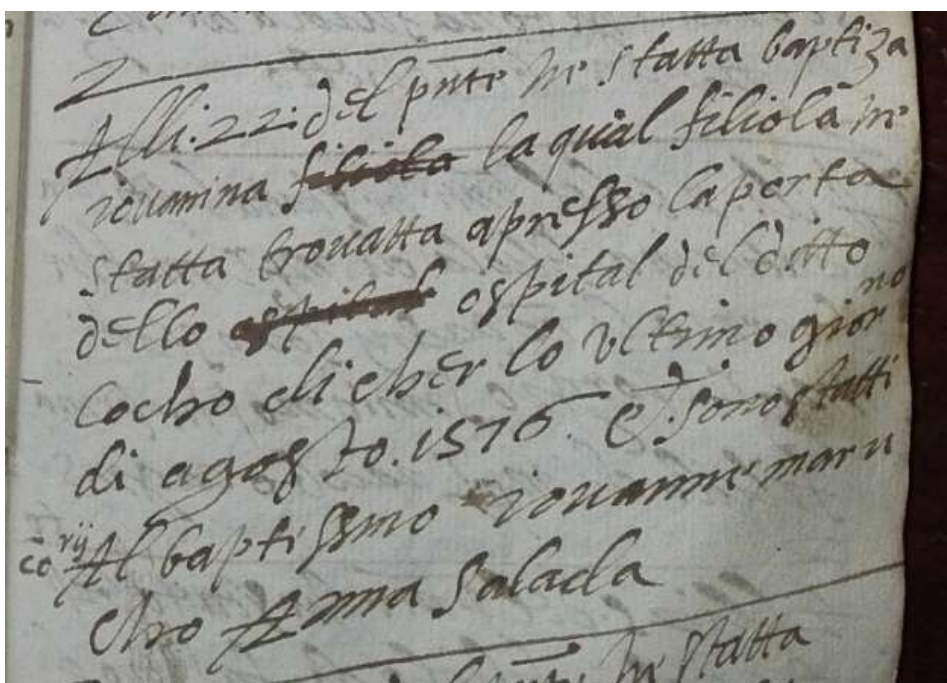 Alli. 22. del pnte he statta baptiza
iouanina filiola la qual filiola he
statta trouatta apresso la porta
dello ospital ospital del ditto
locho di cher lo ultimo gior
no
di agosto. 1576. et sono statti
Al baptissmo iouanne maru
cho Anna Salada
del pnte he statta